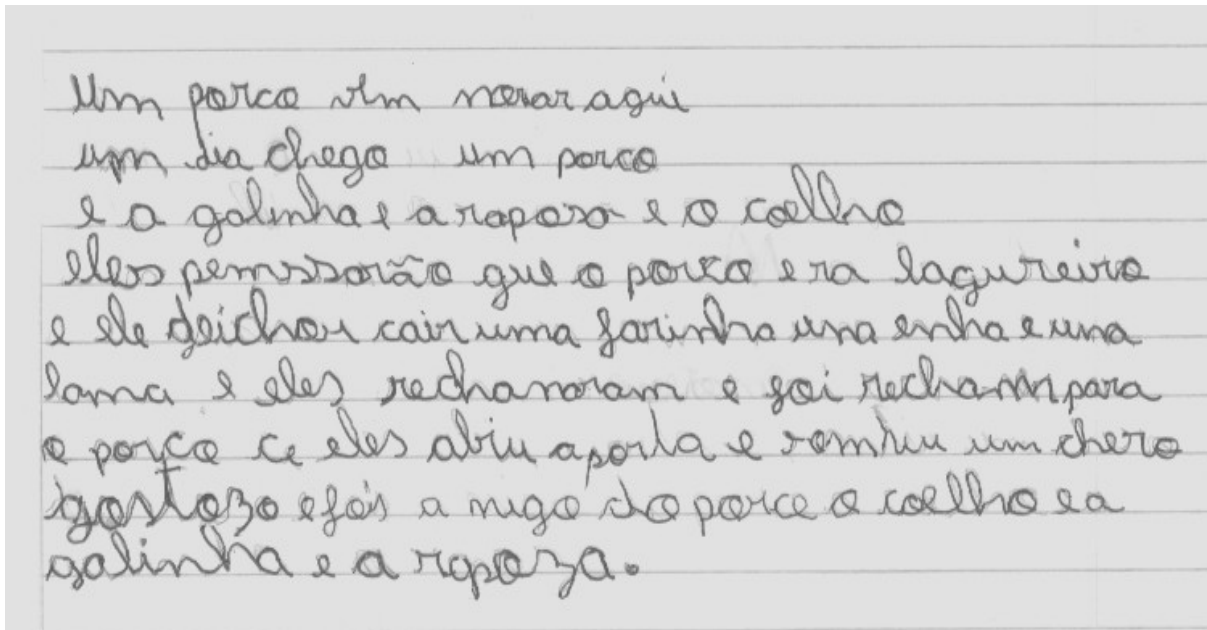 Um porco vim morar aqui
um dia chego um porco
e a galinha e a raposa e o coellho
eles pemssarão que o porco era lagureiro
e ele deichou cair uma farinha una enha e una
lama e eles rechamaram e foi recham para
o porco ce eles abiu aporta e semtiu um chero
gostozo e fois a migo do porco o coellho e a
galinha e a rapoza.